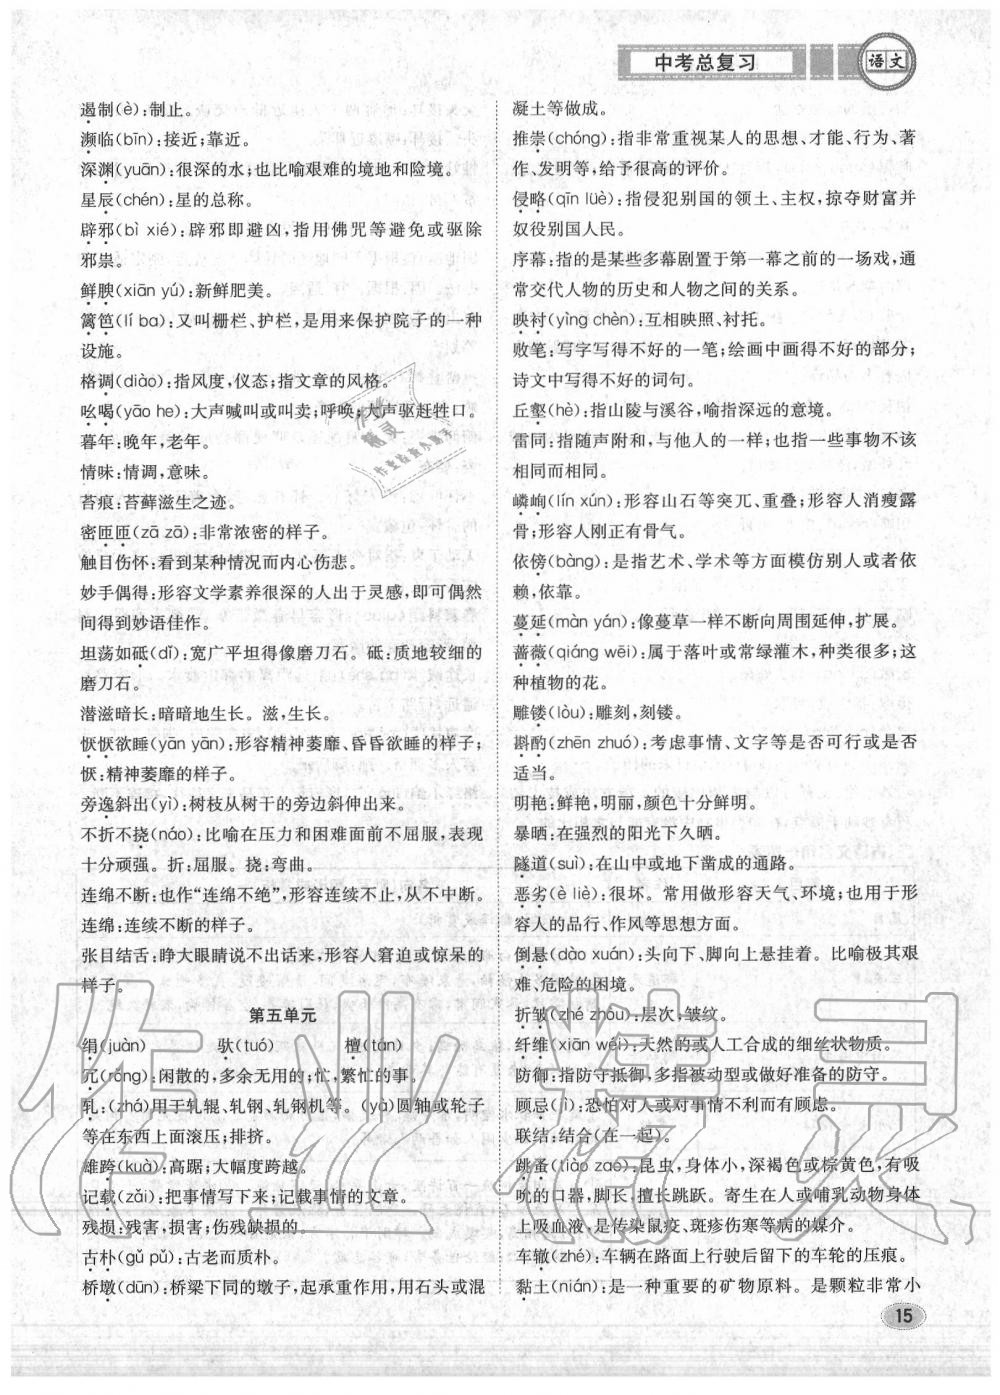 中考总复习
语文
遏制(è):制止。
濒临(bīn):接近;靠近。
深渊(yuān):很深的水;也比喻艰难的境地和险境。
星辰(chén):星的总称。
辟邪(bì xié):辟邪即避凶,指用佛咒等避免或驱除
邪祟。
鲜腴(xiān yú):新鲜肥美。
篱笆(lí ba):又叫栅栏、护栏,是用来保护院子的一种
设施。
格调(diào):指风度,仪态;指文章的风格。
吆喝(yāo he):大声喊叫或叫卖;呼唤;大声驱赶牲口。
暮年:晚年,老年。
情味:情调,意味。
苔痕:苔藓滋生之迹。
密匝匝(zā zā):非常浓密的样子。
触目伤怀:看到某种情况而内心伤悲。
妙手偶得:形容文学素养很深的人出于灵感,即可偶然
间得到妙语佳作。
坦荡如砥(dǐ):宽广平坦得像磨刀石。砥:质地较细的
磨刀石。
潜滋暗长:暗暗地生长。滋,生长。
恹恹欲睡(yān yān):形容精神萎靡、昏昏欲睡的样子;
恹:精神萎靡的样子。
旁逸斜出(yì):树枝从树干的旁边斜伸出来。
不折不挠(náo):比喻在压力和困难面前不屈服,表现
十分顽强。折:屈服。挠:弯曲。
连绵不断:也作“连绵不绝”,形容连续不止,从不中断。
连绵:连续不断的样子。
张目结舌:睁大眼睛说不出话来,形容人窘迫或惊呆的
样子。
第五单元
绢(juàn) 驮(tuó) 檀(tán)
冗(rǒng):闲散的,多余无用的;忙,繁忙的事。
轧:(zhá)用于轧辊、轧钢、轧钢机等。(yà)圆轴或轮子
等在东西上面滚压;排挤。
雄跨(kuà):高踞;大幅度跨越。
记载(zǎi):把事情写下来;记载事情的文章。
残损:残害,损害;伤残缺损的。
古朴(gǔ pǔ):古老而质朴。
桥墩(dūn):桥梁下同的墩子,起承重作用,用石头或混
凝土等做成。
推崇(chóng):指非常重视某人的思想、才能、行为、著
作、发明等,给予很高的评价。
侵略(qīn lüè):指侵犯别国的领土、主权,掠夺财富并
奴役别国人民。
序幕:指的是某些多幕剧置于第一幕之前的一场戏,通
常交代人物的历史和人物之间的关系。
映衬(yìng chèn):互相映照、衬托。
败笔:写字写得不好的一笔;绘画中画得不好的部分;
诗文中写得不好的词句。
丘壑(hè):指山陵与溪谷,喻指深远的意境。
雷同:指随声附和,与他人的一样;也指一些事物不该
相同而相同。
嶙峋(lín xún):形容山石等突兀、重叠;形容人消瘦露
骨;形容人刚正有骨气。
依傍(bàng):是指艺术、学术等方面模仿别人或者依
赖,依靠。
蔓延(màn yán):像蔓草一样不断向周围延伸,扩展。
蔷薇(qiáng wēi):属于落叶或常绿灌木,种类很多;这
种植物的花。
雕镂(lòu):雕刻,刻镂。
斟酌(zhēn zhuó):考虑事情、文字等是否可行或是否
适当。
明艳:鲜艳,明丽,颜色十分鲜明。
暴晒:在强烈的阳光下久晒。
隧道(suì):在山中或地下凿成的通路。
恶劣(è liè):很坏。常用做形容天气、环境;也用于形
容人的品行、作风等思想方面。
倒悬(dào xuán):头向下、脚向上悬挂着。比喻极其艰
难、危险的困境。
折皱(zhé zhòu):层次,皱纹。
纤维(xiān wéi):天然的或人工合成的细丝状物质。
防御:指防守抵御,多指被动型或做好准备的防守。
顾忌(jì):恐怕对人或对事情不利而有顾虑。
联结:结合(在一起)。
跳蚤(tiào zao):昆虫,身体小,深褐色或棕黄色,有吸
吮的口器,脚长,擅长跳跃。寄生在人或哺乳动物身体
上吸血液,是传染鼠疫、斑疹伤寒等病的媒介。
车辙(zhé):车辆在路面上行驶后留下的车轮的压痕。
黏土(nián):是一种重要的矿物原料。是颗粒非常小
15